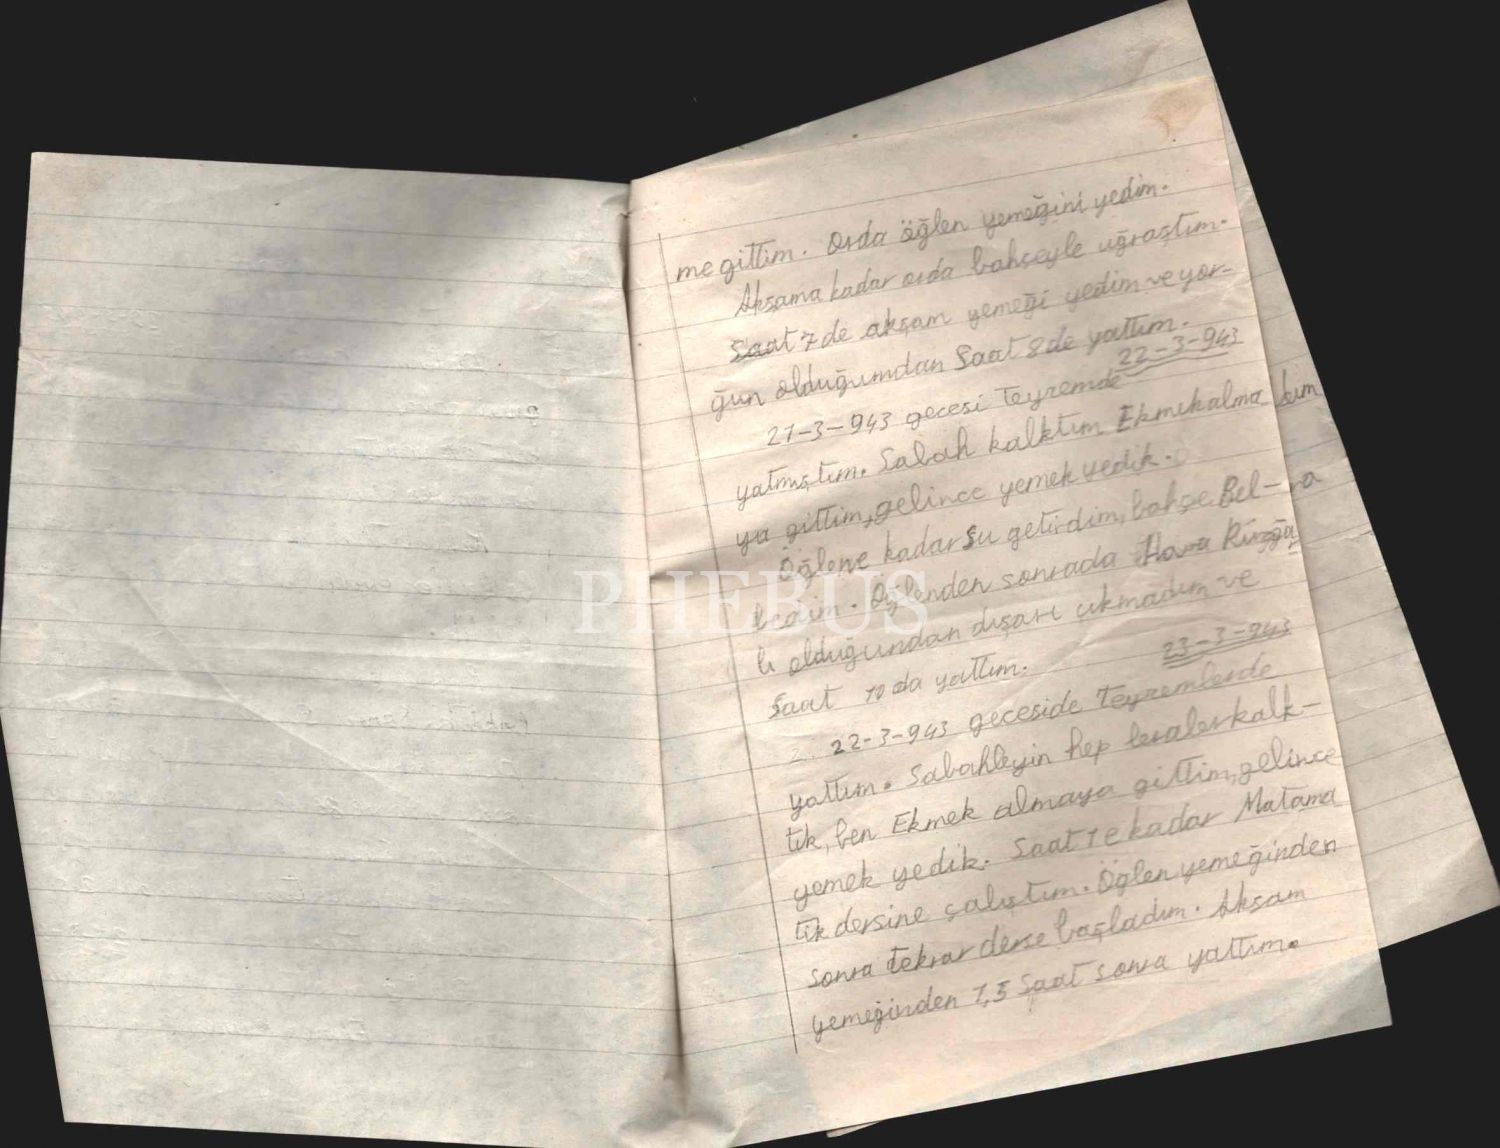 me gittim. Orda öğlen yemeğini yedim.
Akşama kadar orda bahçeyle uğraştım.
Saat 7 de akşam yemeği yedim ve yor-
ğun olduğumdan Saat 8 de yattım.
22-3-943
21-3-943 gecesi Teyzemde
yatmıştım. Sabah kalktım Ekmek alma
ya gittim, gelince yemek yedik.
Öğlene kadar su getirdim, bahçe Bel-
ledim. Öğlenden sonrada Hava Rüzğa
lı olduğundan dışarı çıkmadım ve
Saat 10 da yattım.
23-3-943
22-3-943 geceside Teyzemlerde
yattım. Sabahleyin hep beraber kalk-
tık, ben Ekmek almaya gittim, gelince
yemek yedik. Saat 1 e kadar Matama
tik dersine çalıştım. Öğlen yemeğinden
sonra tekrar derse başladım. Akşam
yemeğinden 1,5 Saat sonra yattım.
PHEBUS